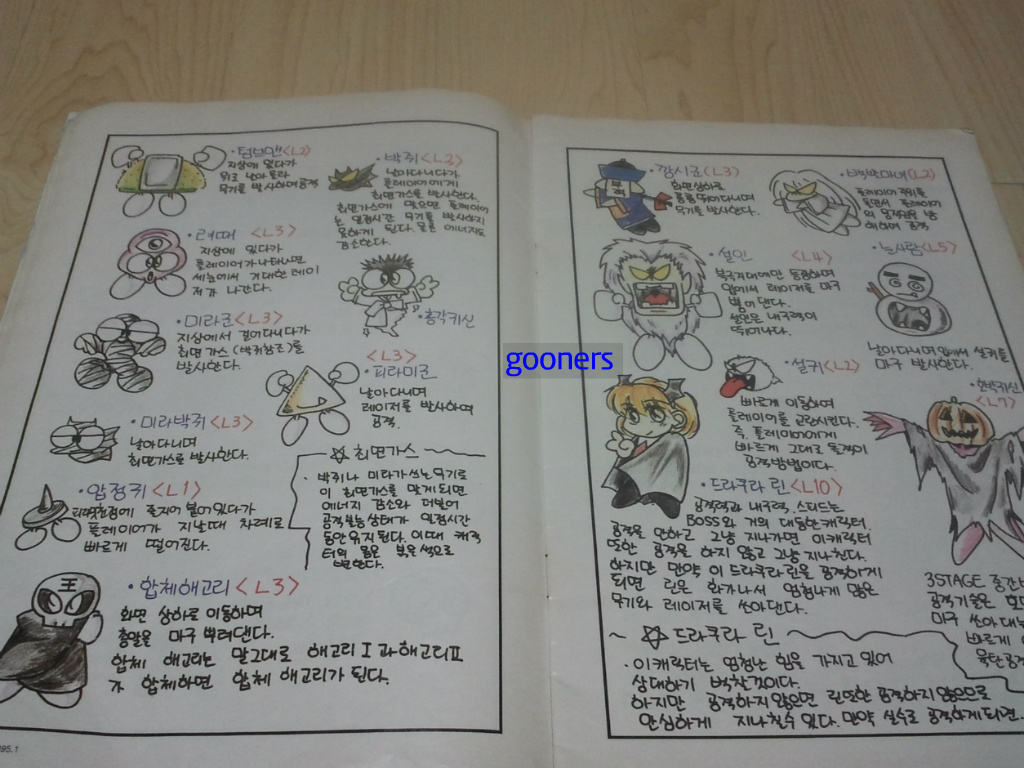 · 텀브맨<L2>
지상에 있다가
위로 날아올라
무기를 발사하며 공격
· 박쥐<L2>
날아다니다가
플레이어에게
최면가스를 발사한다.
최면가스에 맞으면 플레이어
는 일정시간 무기를 발사하지
못하게 된다. 물론 에너지도
감소한다.
· 려때 <L3>
지상에 있다가
플레이어가 나타나면
세눈에서 거대한 레이
저가 나간다.
· 총각귀신
<L3>
· 미라죤<L3>
지상에서 걸어다니다가
최면 가스 (박쥐참조)를
발사한다.
· 피라미죤
날아다니며
레이저를 발사하며
공격.
· 미라박쥐<L3>
날아다니며
최면가스를 발사한다.
· 압정귀<L1>
줄지어 붙어있다가
플레이어가 지날때 차례로
빠르게 떨어진다.
☆ 최면가스
· 박쥐나 미라가 쓰는 무기로
이 최면가스를 맞게 되면
에너지 감소와 더불어
공격불능상태가 일정시간
동안 유지된다. 이때 캐릭
터의 몸은 붉은색으로
변한다.
· 합체해고리<L3>
화면 상하로 이동하며
총알을 마구 뿌려댄다.
합체 해고리는 말그대로 해고리 I 과 해고리 II
가 합체하면 합체 해고리가 된다.
95.1
gooners
· 강시죤<L3>
화면상하로
통통 뛰어다니며
무기를 발사한다.
<L2>
플레이어 주위를
돌면서 플레이어
의 공격을 방
해하며 공격
· 설인 <L4>
북극지대에만 등장하며
입에서 레이저를 마구
뿜어댄다.
설인은 내구력이
뛰어나다.
· 눈사람<L5>
날아다니며 입에서 설귀를
마구 발사한다.
· 설귀<L2>
빠르게 이동하며
플레이어를 교란시킨다.
즉, 플레이어에게
빠르게 그대로 돌격이
공격방법이다.
· 호박귀신
<L7>
· 드라큐라 린<L10>
공격력과 내구력, 스피드는
BOSS와 거의 대등한 캐릭터.
공격을 안하고 그냥 지나가면 이캐릭터
또한 공격을 하지 않고 그냥 지나친다.
하지만 만약 이 드라큐라 린을 공격하게
되면 린은 화가나서 엄청나게 많은
무기와 레이저를 쏘아댄다.
3STAGE 중간
공격기술은
마구 쏘아대
빠르게
육탄공격
☆ 드라큐라 린
· 이캐릭터는 엄청난 힘을 가지고 있어
상대하기 벅찰것이다.
하지만 공격하지않으면 린또한 공격하지 않으므로
안심하게 지나칠수 있다. 만약 실수로 공격하게되면...